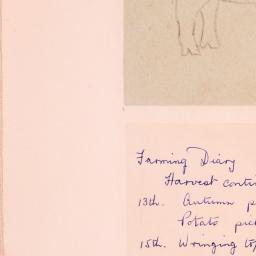 Farming Diary
Harvest conti
13th. Autumn p
Potato pic
15th. Wringing to